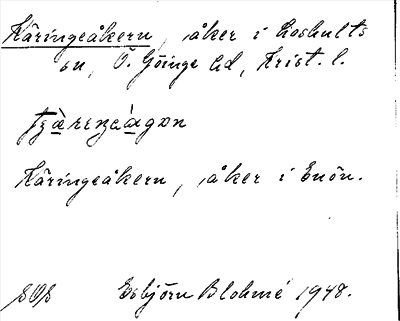 Käringeåkern, åker i Loshults
sn, Ö. Göinge hd, Krist. l.
Käringeåkern, åker i Enön.
SOS Esbjörn Blohmé 1948.